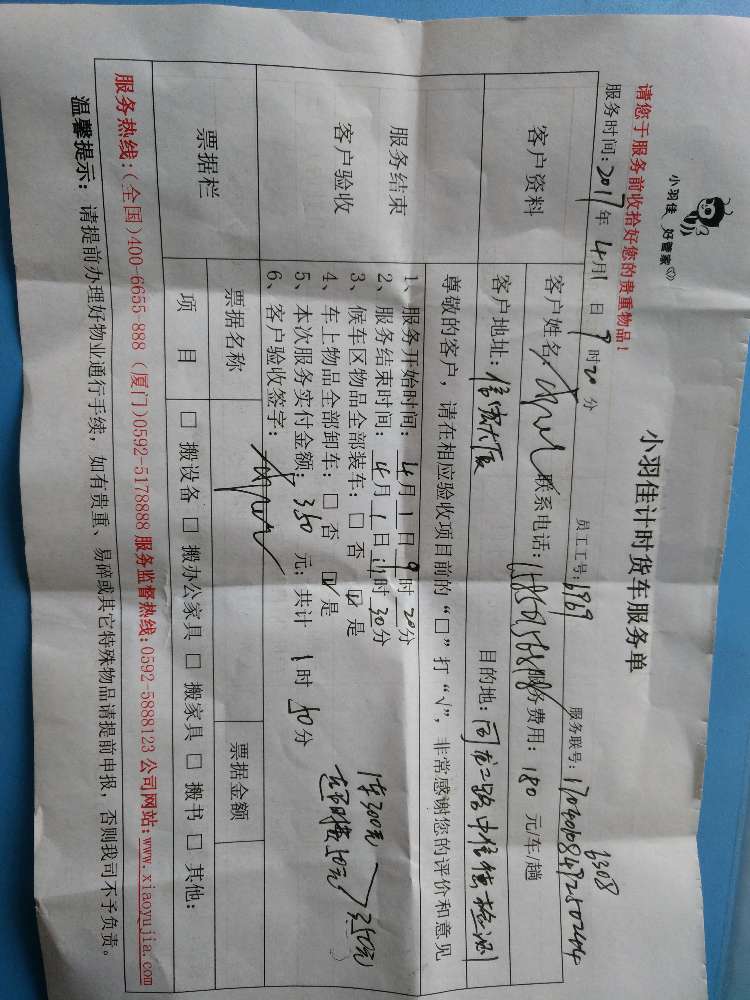 小羽佳 好管家
小羽佳计时货车服务单
请您于服务前收拾好您的贵重物品！
员工工号：6969
服务联号：
6308
服务时间：2017年4月1日9时20分
客户资料
客户姓名
联系电话：
服务费用：180元/车/趟
客户地址：信宏大厦
目的地：同龙二路中
检测
尊敬的客户，请在相应验收项目前的“□”打“√”，非常感谢您的评价和意见
服务结束
客户验收
1、服务开始时间：4月1日9时20分
2、服务结束时间：4月1日11时30分
3、候车区物品全部装车：□否 ☑是
4、车上物品全部卸车：□否 ☑是
5、本次服务实付金额：350元；共计1时50分
6、客户验收签字：
车300元
50元
350元
票据栏
票据名称
票据金额
项 目
□搬设备 □搬办公家具 □搬家具 □搬书 □其他：
服务热线：(全国)400-6655-888 (厦门)0592-5178888 服务监督热线:0592-5888123 公司网站:www.xiaoyujia.com
温馨提示：请提前办理好物业通行手续，如有贵重、易碎或其它特殊物品请提前申报，否则我司不予负责。